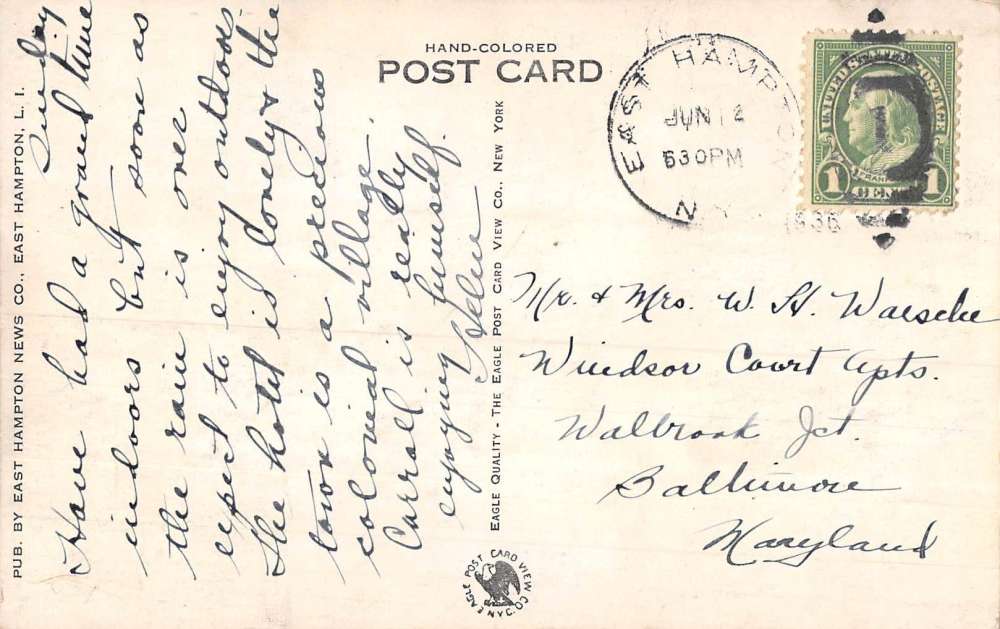 PUB. BY EAST HAMPTON NEWS CO., EAST HAMPTON, L. I.
Sunday
Have had a grand time
indoors but soon as
the rain is over
expect to enjoy outdoors.
The hotel is lovely & the
town is a precious
colonial village.
Carroll is really
enjoying himself.
Helen
EAGLE QUALITY - THE EAGLE POST CARD VIEW CO., NEW YORK
EAGLE POST CARD VIEW CO. N.Y.C.
HAND-COLORED
POST CARD
EAST HAMPTON
JUN 12
630 PM
N.Y.
1936
UNITED STATES POSTAGE
FRANKLIN
1 CENT 1
Mr. & Mrs. W. H. Waesche
Windsor Court Apts.
Walbrook Jct.
Baltimore
Maryland